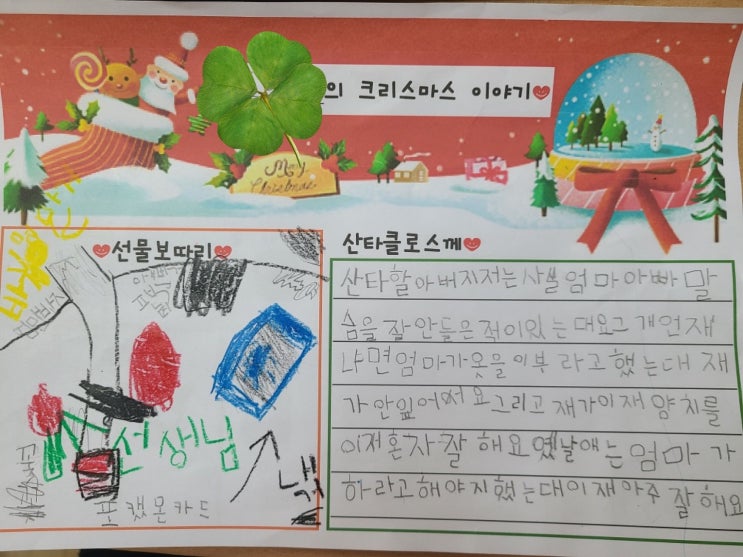 의 크리스마스 이야기
Merry
Christmas
선물보따리
산타클로스께
선생님
포캤몬카드
산타할아버지저는사쓸엄마아빠말
슴을잘안들은적이있는대요그개언재
냐면엄마가옷을이부라고했는대재
가안잎어서요그리고재가이재양치를
이저혼자잘해요옜날애는엄마가
하라고해야지했는대이재아주잘해요